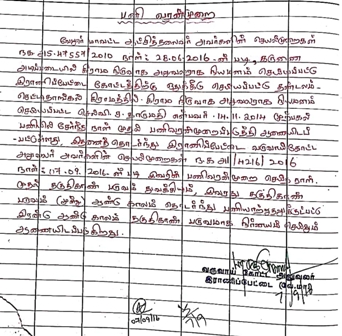 பணி வரன்முறை
வேலூர் மாவட்ட ஆட்சித்தலைவர் அவர்களின் செயல்முறைகள்
நக அ15.47557/2010 நாள்: 28.06.2016-ன் படி, கருணை
அடிப்படையில் கிராம நிர்வாக அலுவலராக நியமனம் செய்யப்பட்டு
இராணிப்பேட்டை கோட்டத்திற்கு ஒதுக்கீடு செய்யப்பட்டு
கிராமத்தில் கிராம நிர்வாக அலுவலராக நியமனம்
செய்யப்பட்ட செல்வி என்பவர் 14.11.2014 முற்பகல்
பணியில் சேர்ந்த நாள் முதல் பணிவரன்முறைப்படுத்தி ஆணையிடப்
-பட்டுள்ளது. இதனைத் தொடர்ந்து இராணிப்பேட்டை வருவாய் கோட்ட
அலுவலர் அவர்களின் செயல்முறைகள் ந.க அ1/4216/2016
நாள்: 17.09.2016-ன் படி இவரின் பணிவரன்முறை செய்த நாள்
முதல் தகுதிகாண் பருவம் துவங்கியும் இவரது தகுதிகாண்
பருவம் ஆண்டு காலம் தொடர்ந்து பணியாற்றுதலுக்குட்பட்டு
இரண்டு ஆண்டு காலம் தகுதிகாண் பருவமாக நிர்ணயம் செய்தும்
ஆணையிடப்படுகிறது.
வருவாய் கோட்ட அலுவலர்
இராணிப்பேட்டை